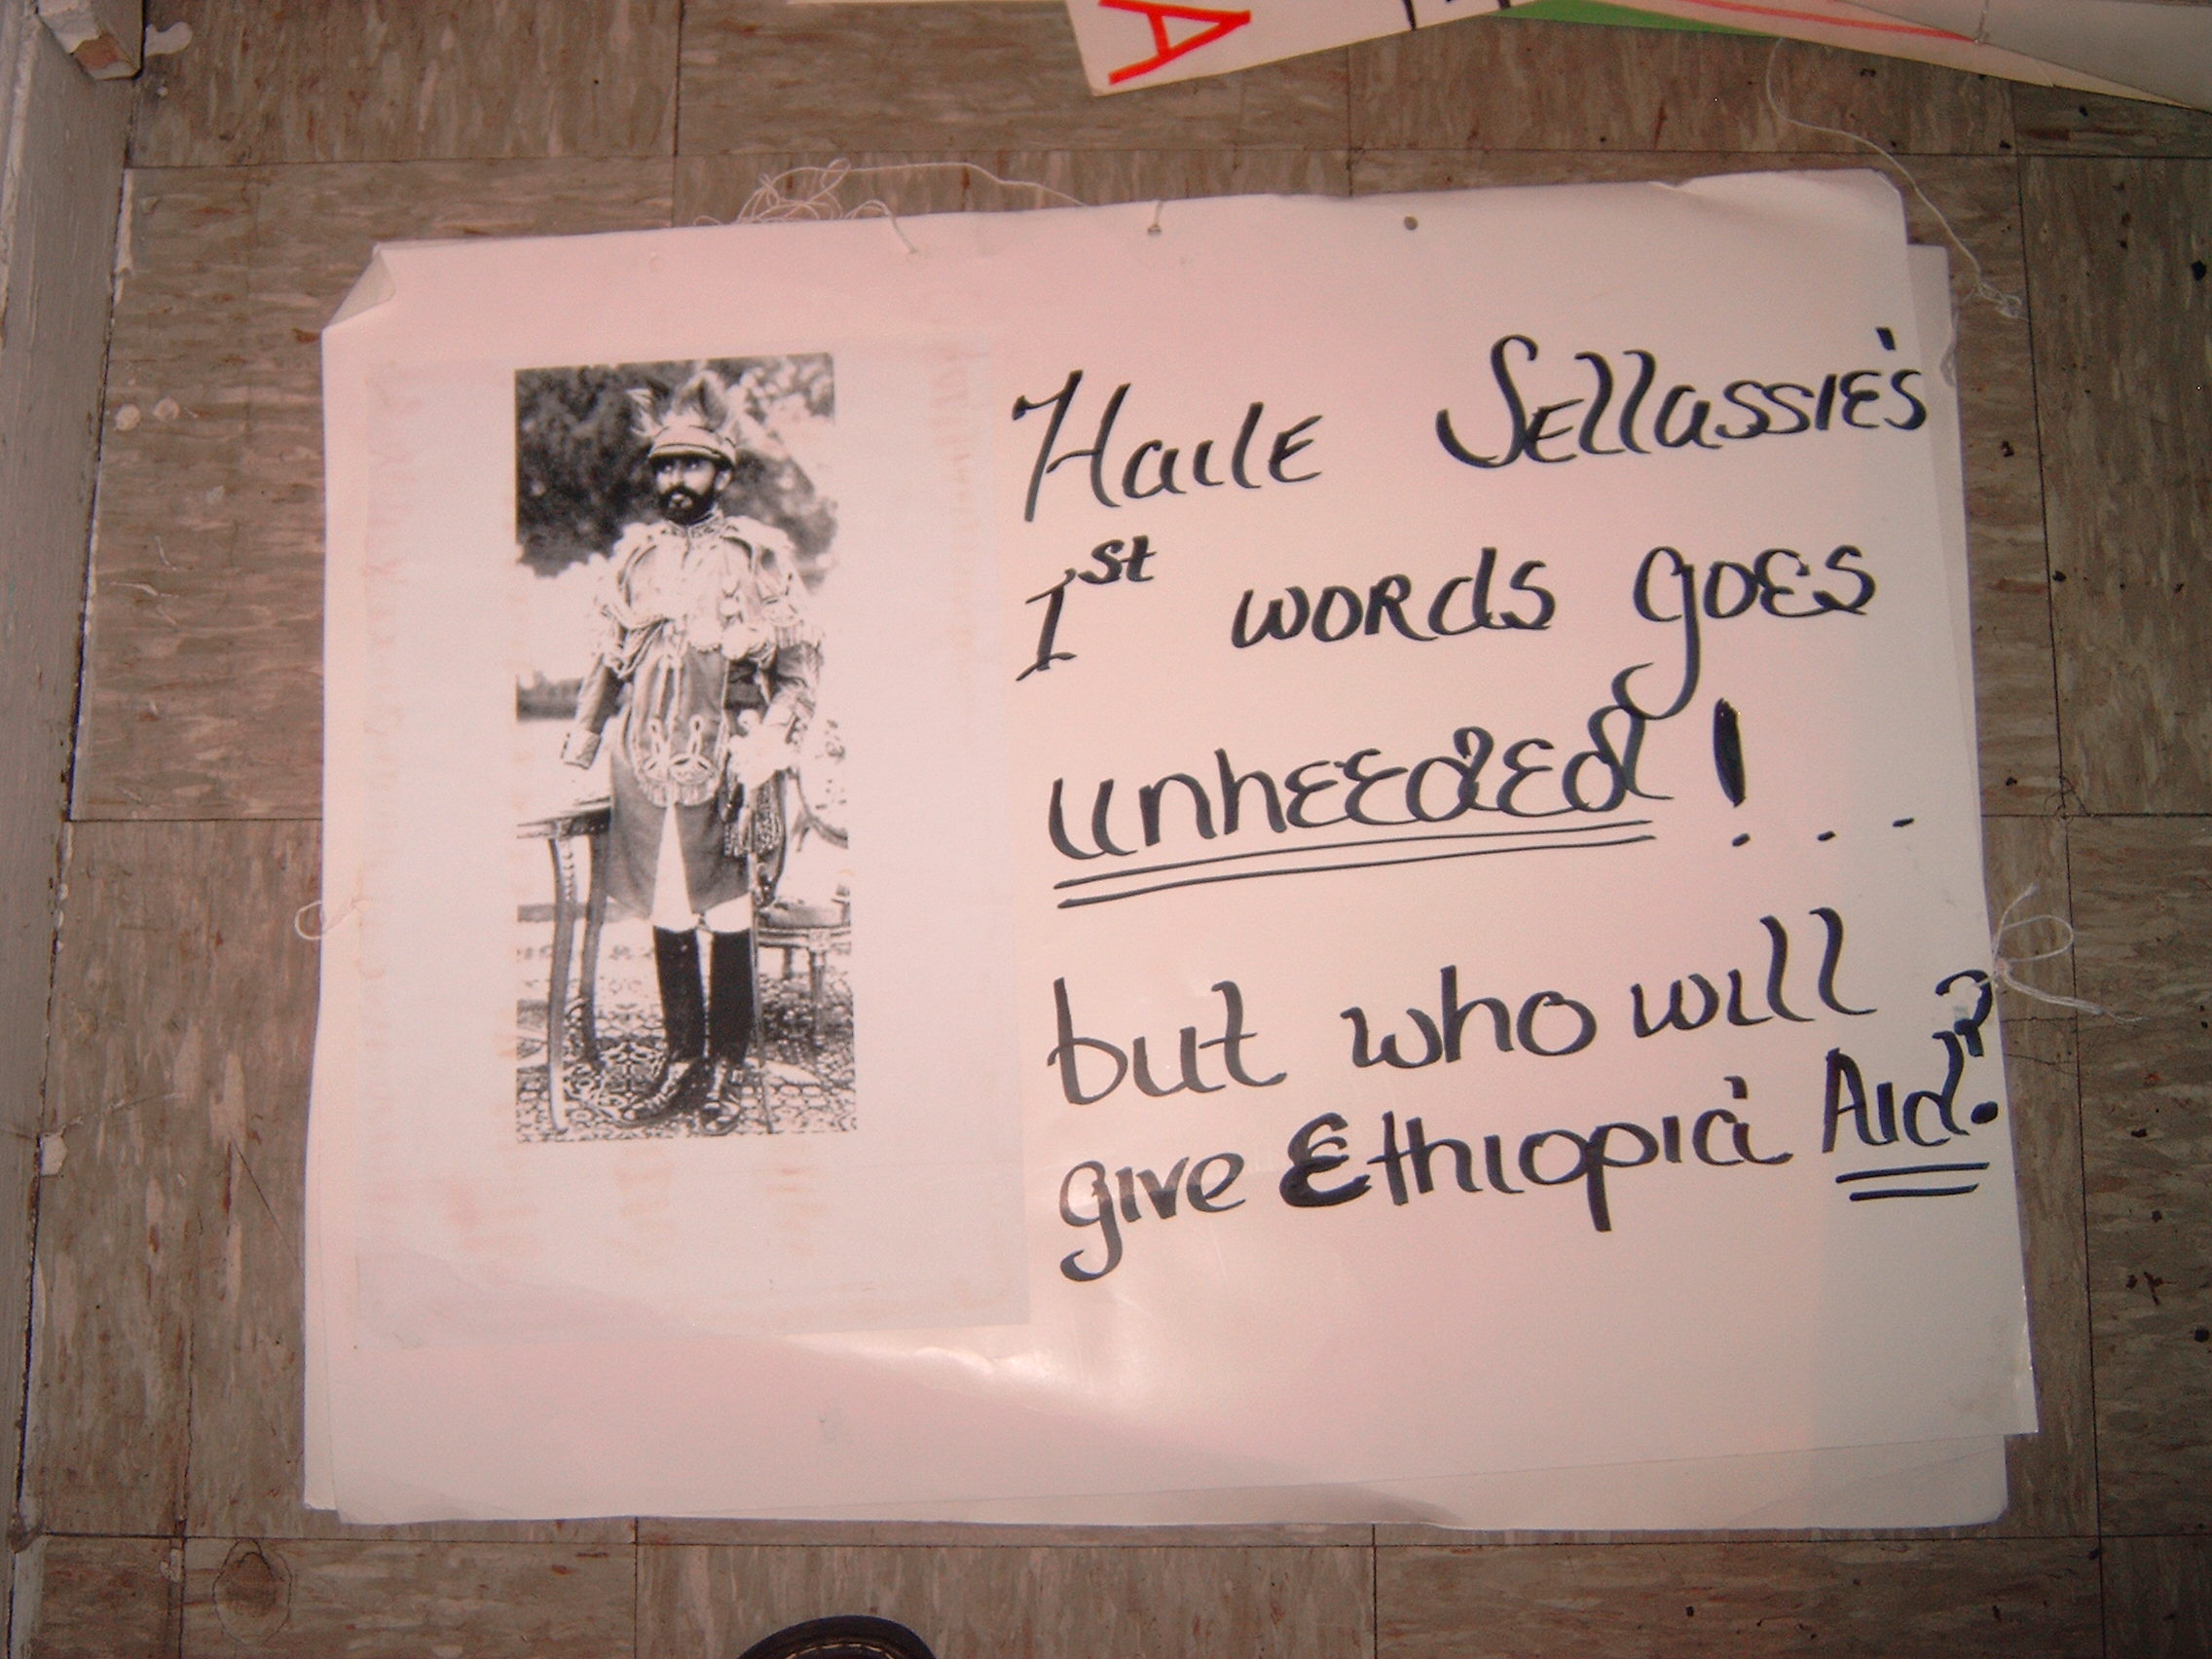 A
Haile Sellassie's
1st words goes
unheeded! . . .
but who will
give Ethiopia Aid?